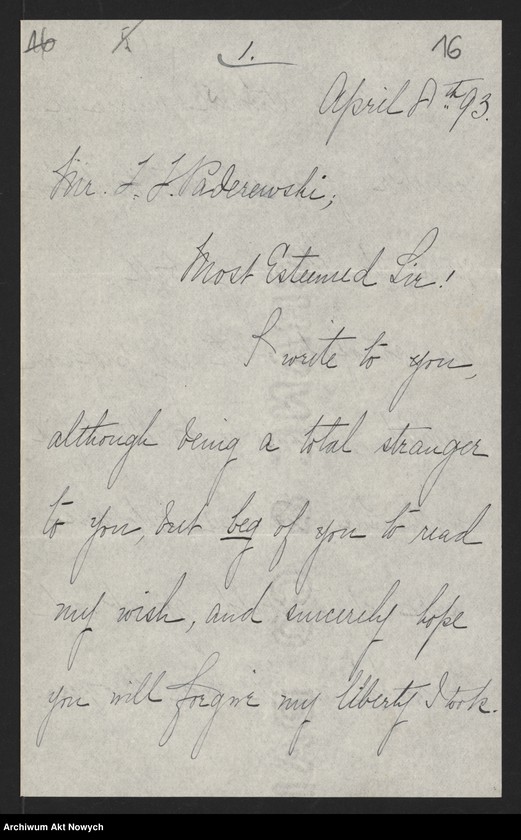 16
1.
16
April 8th 93.
Mr. I. J. Paderewski;
Most Esteemed Sir!
I write to you,
although being a total stranger
to you, but beg of you to read
my wish, and sincerely hope
you will forgive my liberty I took.
Archiwum Akt Nowych